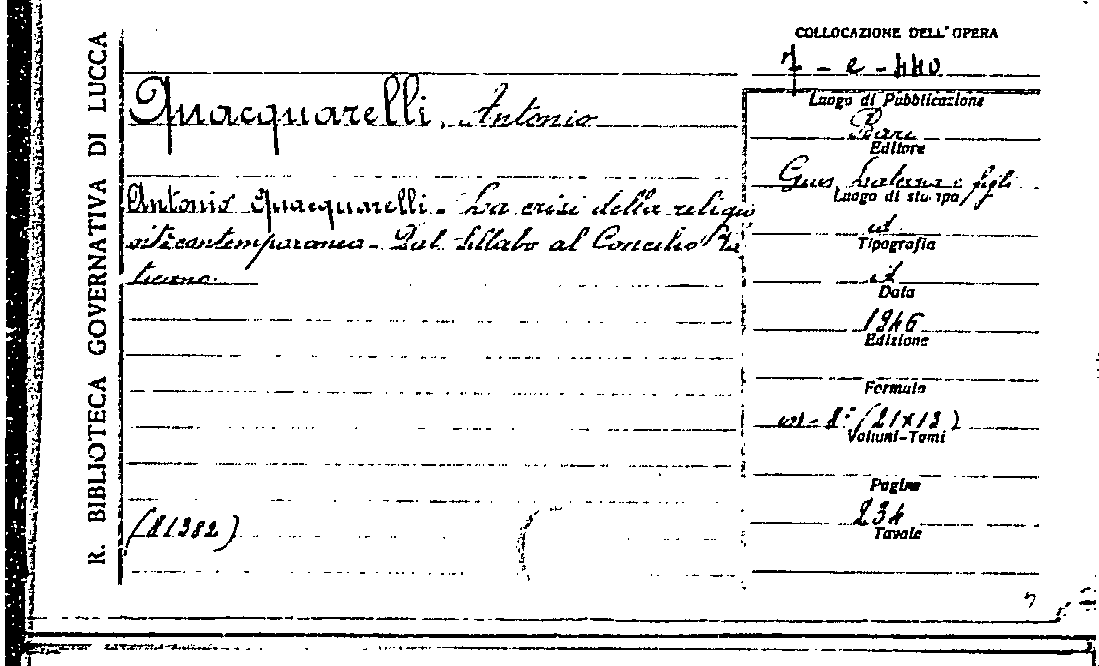 R. BIBLIOTECA GOVERNATIVA DI LUCCA
COLLOCAZIONE DELL'OPERA
7 - e - 440
Quacquarelli, Antonio
Antonio Quacquarelli - La crisi della religio
sità contemporanea - Dal Sillabo al Concilio Va
ticano.
(81382)
Luogo di Pubblicazione
Bari
Editore
Gius. Laterza e figli
Luogo di stampa
id
Tipografia
id
Data
1946
Edizione
Formato
in-8° (21x13)
Volumi-Tomi
Pagine
234
Tavole